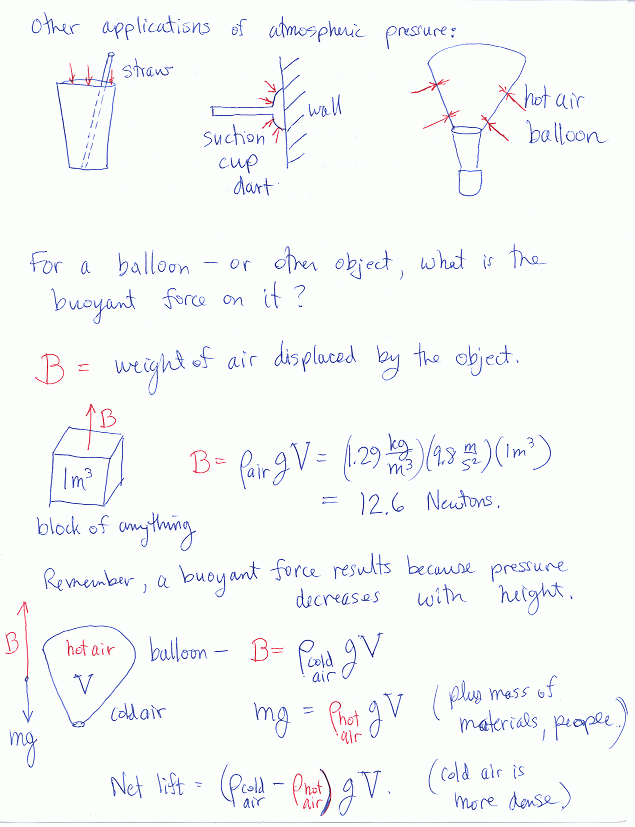 Other applications of atmospheric pressure:
straw
wall
suction
cup
dart
hot air
balloon
For a balloon – or other object, what is the
buoyant force on it?
B = weight of air displaced by the object.
B
1 m³
block of anything
B = ρair g V = (1.29 kg/m³)(9.8 m/s²)(1 m³)
= 12.6 Newtons.
Remember, a buoyant force results because pressure
decreases with height.
B
mg
hot air
V
cold air
balloon – B = ρcold air g V
mg = ρhot air g V (plus mass of
materials, people)
Net lift = (ρcold air – ρhot air) g V. (cold air is
more dense)